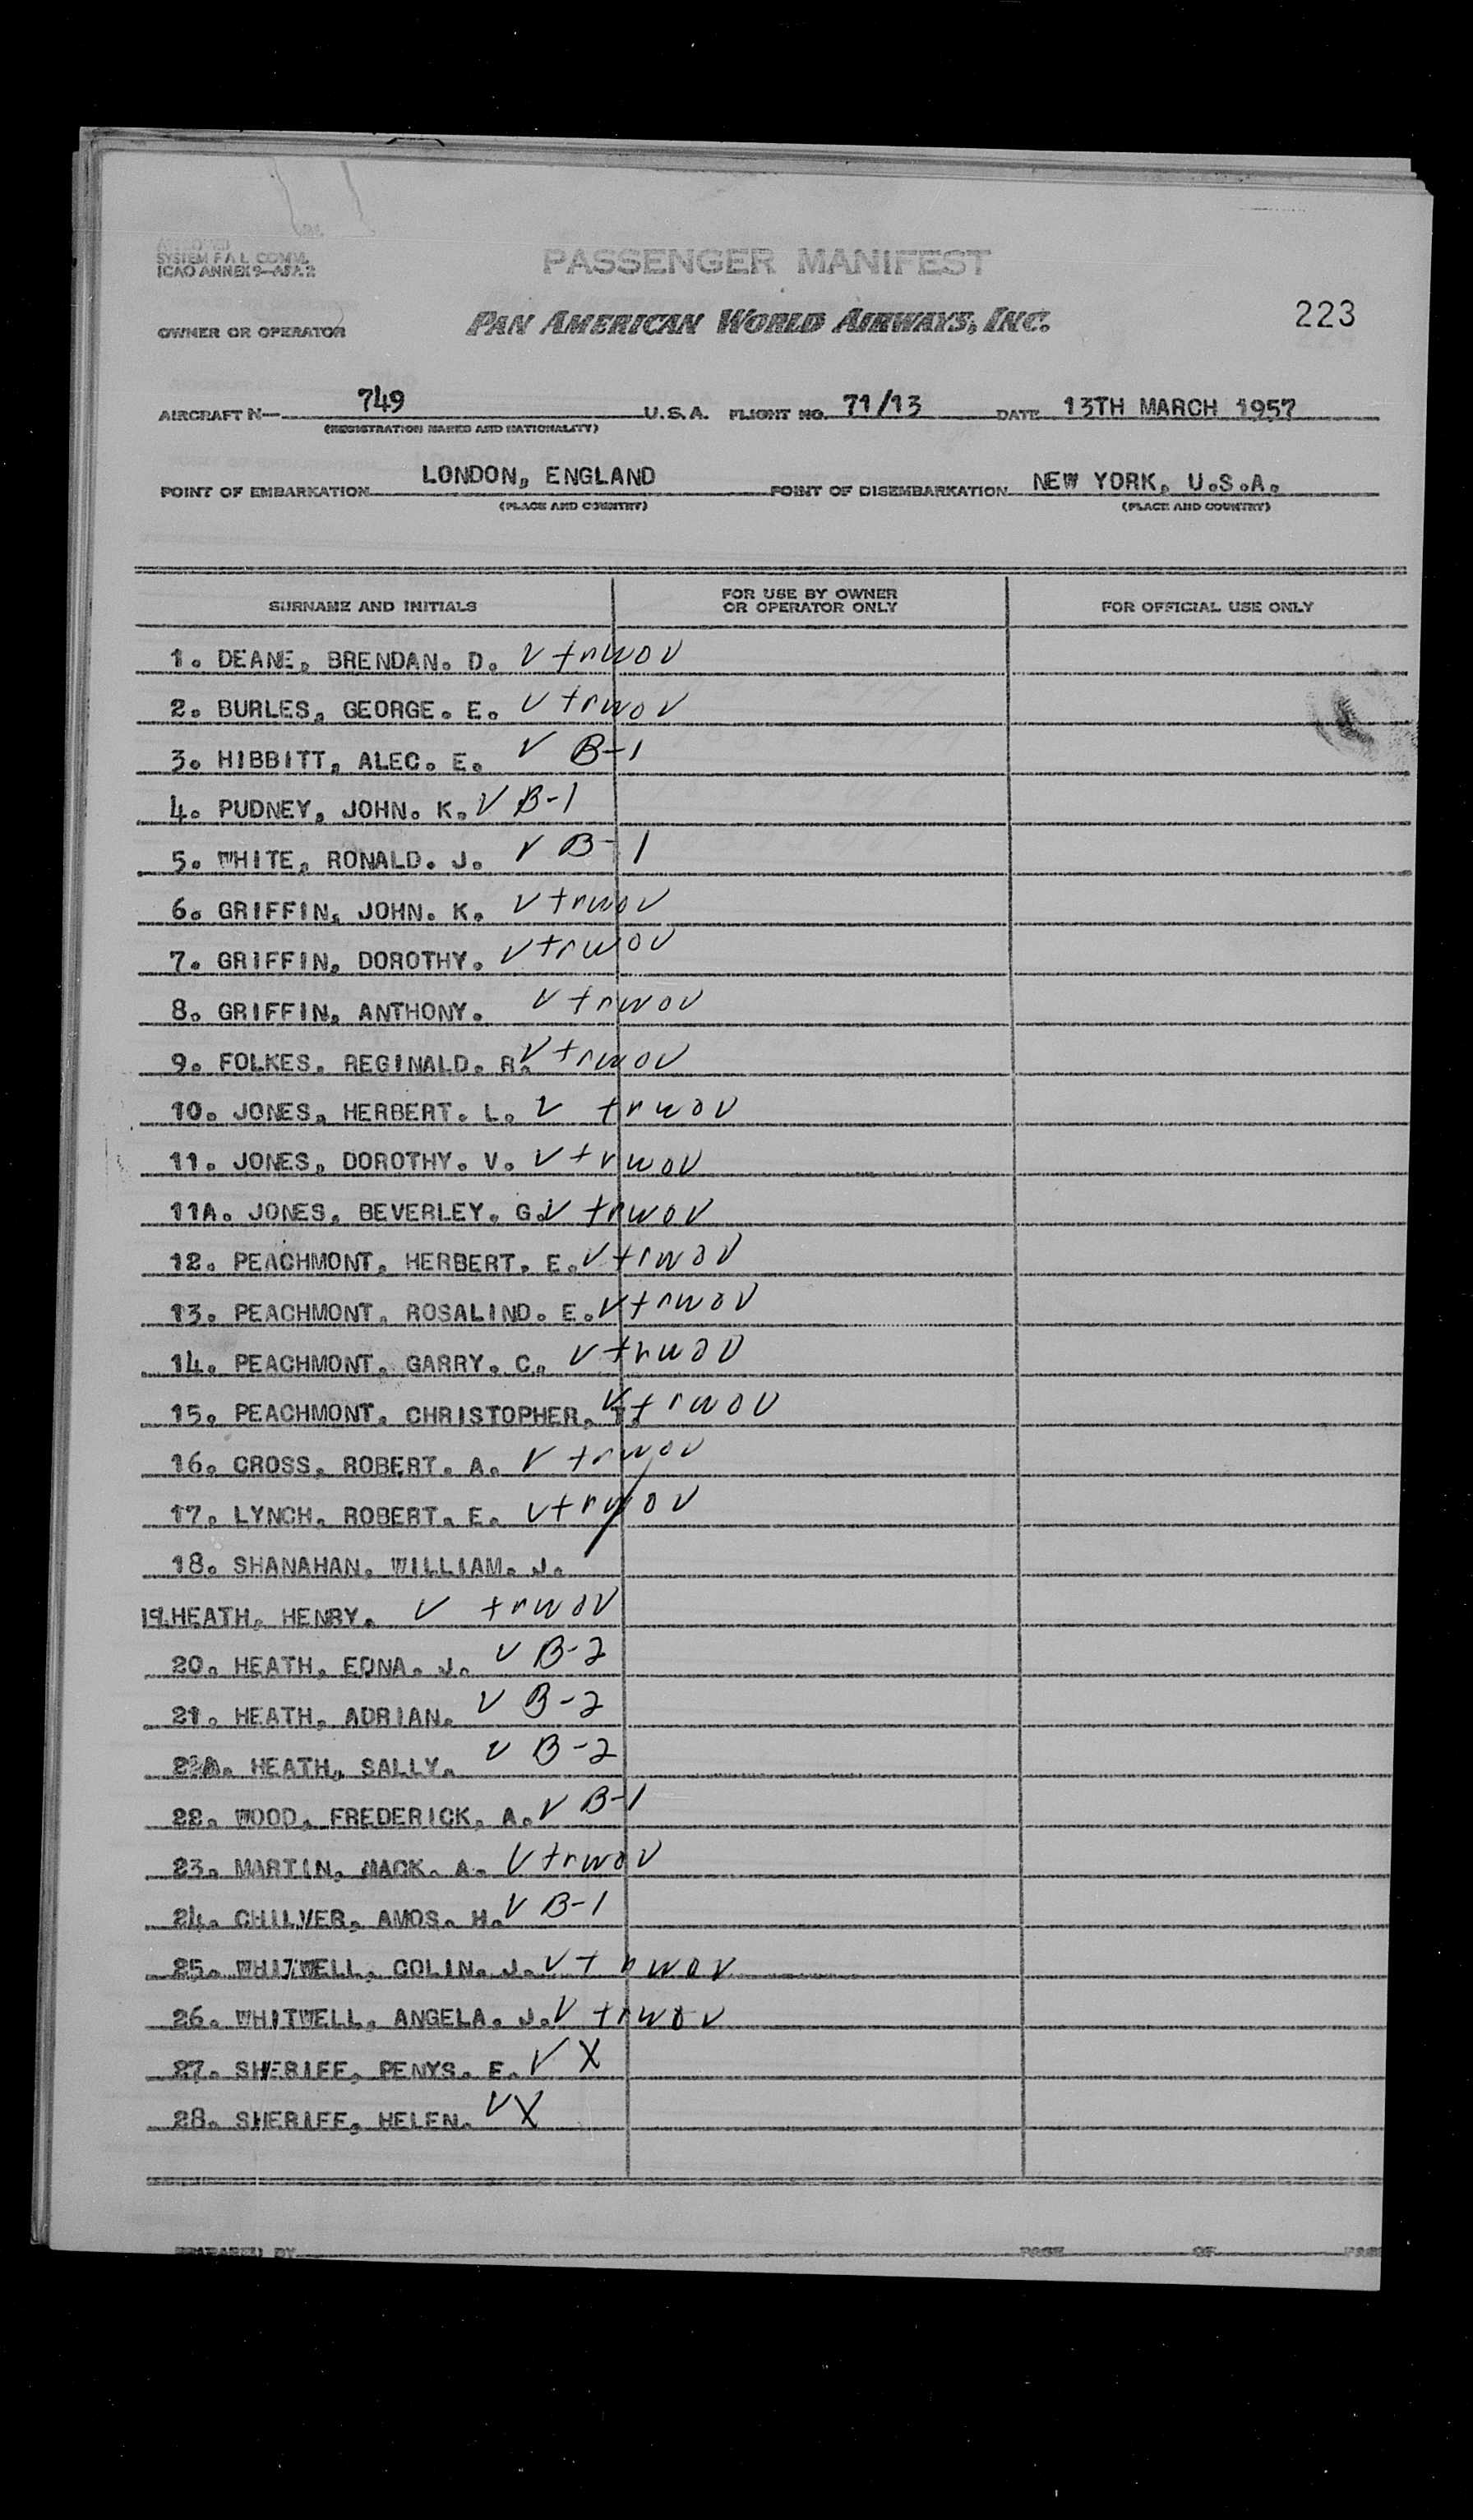 SYSTEM F A L COMM.
ICAO ANNEX 9—APA 2
PASSENGER MANIFEST
OWNER OR OPERATOR PAN AMERICAN WORLD AIRWAYS, INC. 223
AIRCRAFT N— 749 U.S.A. FLIGHT NO. 71/13 DATE 13TH MARCH 1957
(REGISTRATION MARKS AND NATIONALITY)
POINT OF EMBARKATION LONDON, ENGLAND POINT OF DISEMBARKATION NEW YORK, U.S.A.
(PLACE AND COUNTRY) (PLACE AND COUNTRY)
SURNAME AND INITIALS FOR USE BY OWNER OR OPERATOR ONLY FOR OFFICIAL USE ONLY
1. DEANE, BRENDAN. D. V trwov
2. BURLES, GEORGE. E. V trwov
3. HIBBITT, ALEC. E. V B-1
4. PUDNEY, JOHN. K. V B-1
5. WHITE, RONALD. J. V B-1
6. GRIFFIN, JOHN. K. V trwov
7. GRIFFIN, DOROTHY. V trwov
8. GRIFFIN, ANTHONY. V trwov
9. FOLKES, REGINALD. R. V trwov
10. JONES, HERBERT. L. V trwov
11. JONES, DOROTHY. V. V trwov
11A. JONES, BEVERLEY. G. V trwov
12. PEACHMONT, HERBERT. E. V trwov
13. PEACHMONT, ROSALIND. E. V trwov
14. PEACHMONT, GARRY. C. V trwov
15. PEACHMONT, CHRISTOPHER. T. V trwov
16. CROSS, ROBERT. A. V trwov
17. LYNCH, ROBERT. E. V trwov
18. SHANAHAN, WILLIAM. J.
19. HEATH, HENRY. V trwov
20. HEATH, EDNA. J. V B-2
21. HEATH, ADRIAN. V B-2
21A. HEATH, SALLY. V B-2
22. WOOD, FREDERICK. A. V B-1
23. MARTIN, MACK. A. V trwov
24. CHILVER, AMOS. H. V B-1
25. WHITWELL, COLIN. J. V trwov
26. WHITWELL, ANGELA. J. V trwov
27. SHERIFF, PENYS. E. V X
28. SHERIFF, HELEN. V X
PREPARED BY PAGE OF